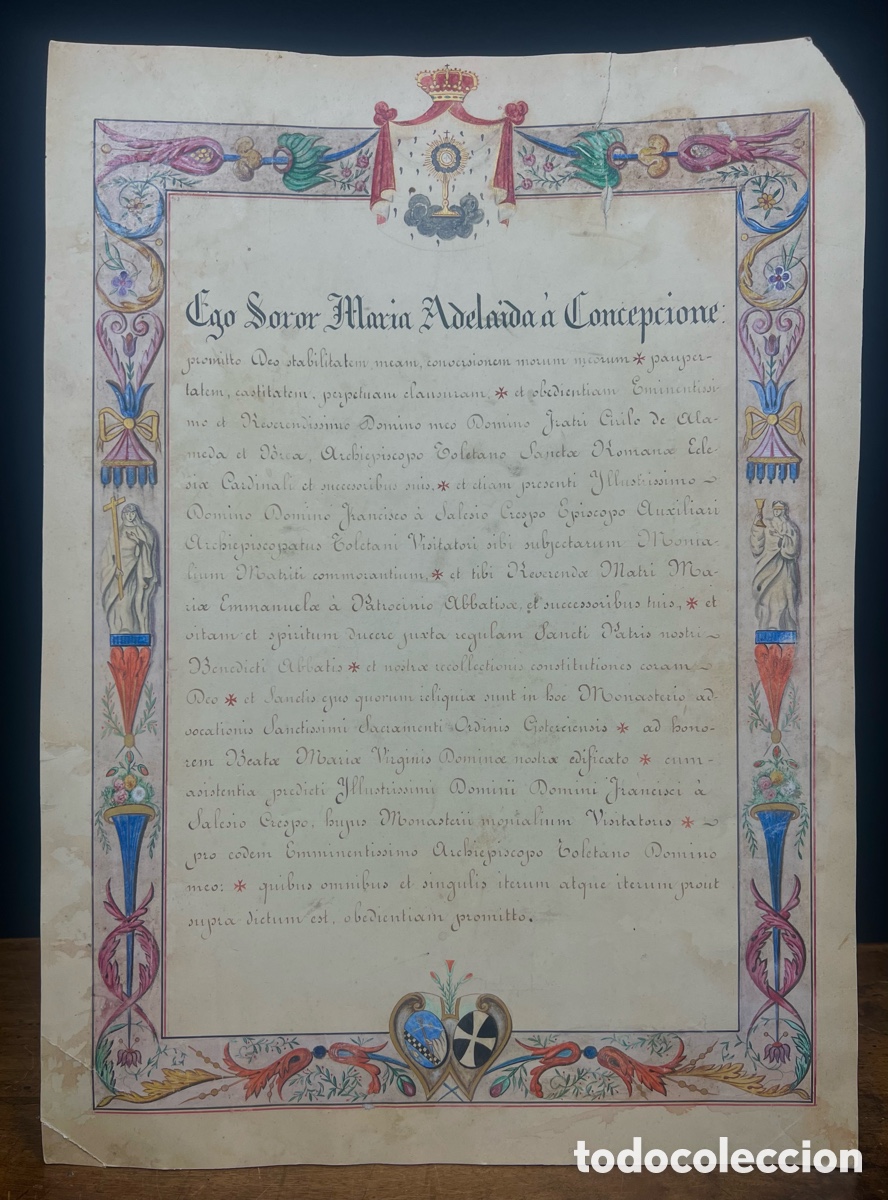 Ego Soror Maria Adelaida à Concepcione:
promitto Deo stabilitatem meam, conversionem morum meorum ✠ pauper-
tatem, castitatem, perpetuam clausuram, ✠ et obedientiam Eminentissi-
mo et Reverendissimo Domino meo Domino Fratri Cirilo de Ala-
meda et Brea, Archiepiscopo Toletano Sanctæ Romanæ Ecle-
siæ Cardinali et successoribus suis, ✠ et etiam presenti Yllustrissimo
Domino Domino Francisco à Salesio Crespo Episcopo Auxiliari
Archiepiscopatus Toletani Visitatori sibi subjectarum Monia-
lium Matriti commorantium, ✠ et tibi Reverendæ Matri Ma-
riæ Emmanuelæ à Patrocinio Abbatisæ, et successoribus tuis, ✠ et
vitam et spiritum ducere juxta regulam Sancti Patris nostri
Benedicti Abbatis ✠ et nostræ recollectionis constitutiones coram
Deo ✠ et Sanctis ejus quorum reliquiæ sunt in hoc Monasterio ad-
vocationis Sanctissimi Sacramenti Ordinis Cisterciensis ✠ ad hono-
rem Beatæ Mariæ Virginis Dominæ nostræ edificato ✠ cum
asistentia predicti Yllustrissimi Domini Domini Francisci à
Salesio Crespo, hujus Monasterii monialium Visitatoris ✠
pro eodem Emminentissimo Archiepiscopo Toletano Domino
meo: ✠ quibus omnibus et singulis iterum atque iterum prout
supra dictum est, obedientiam promitto.
todocoleccion